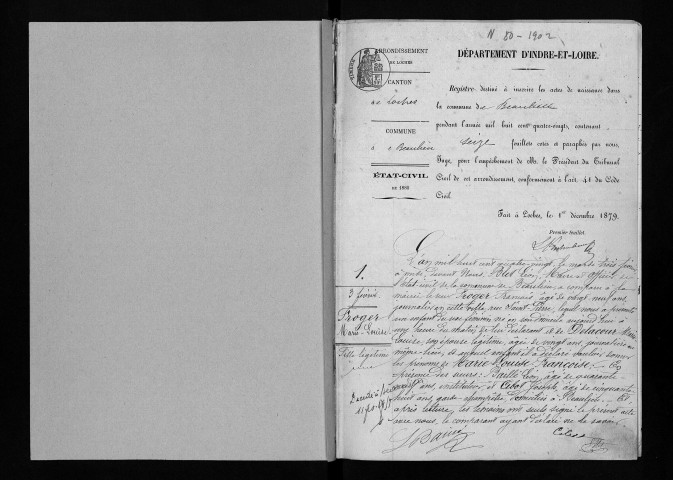 N 80 - 1902
ARRONDISSEMENT
DE LOCHES
CANTON
de Loches
COMMUNE
de Beaulieu
ÉTAT-CIVIL
DE 1880
DÉPARTEMENT D'INDRE-ET-LOIRE.
Registre destiné à inscrire les actes de naissance dans
la commune de Beaulieu
pendant l'année mil huit cent quatre-vingts, contenant
seize feuillets cotés et paraphés par nous,
Juge, pour l'empêchement de M. le Président du Tribunal
Civil de cet arrondissement, conformément à l'art. 41 du Code
Civil.
Fait à Loches, le 1er décembre 1879.
Premier feuillet.
1.
3 février
Proger
Marie-Louise
Fille légitime
Décédée à
L'an mil huit cent quatre-vingt, le mardi trois février
à midi, devant Nous, Blot Léon, Maire et officier
d'état civil de la commune de Beaulieu, a comparu à la
mairie le sieur Proger François, âgé de vingt neuf ans,
journalier en cette ville, rue Saint-Pierre, lequel nous a présenté
un enfant du sexe féminin né en son domicile aujourd'hui
heure du matin, de lui déclarant et de Delacour Marie
Louise, son épouse légitime, âgée de vingt ans, journalière
même lieu, et auquel enfant il a déclaré vouloir donner
les prénoms de Marie-Louise-Françoise. — En
présence des sieurs: Léon, âgé de quarante
ans, instituteur et Cibot Joseph, âgé de cinquante
huit ans, garde-champêtre, domiciliés à Beaulieu. — Et
après lecture, les témoins ont seuls signé le présent acte
avec nous, le comparant ayant déclaré ne le savoir.